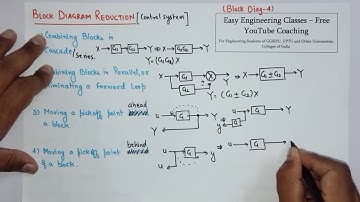 BLOCK DIAGRAM REDUCTION [Control system]
(Block Diag-4)
Easy Engineering Classes – Free
YouTube Coaching
For Engineering Students of GGSIPU, UPTU and Other Universities,
Colleges of India
Combining Blocks in
Cascade/Series.
X → G1 → G2 → Y ⇒ X → G1G2 → Y
Y = (G1G2)X
Combining Blocks in Parallel, or
Eliminating a Forward Loop
X G1 G2 Y ⇒ X → G1 ± G2 → Y
Y = (G1 ± G2) X
3) Moving a pickoff point ahead
a block.
u G Y Y ⇒ u G Y y G
4) Moving a pickoff point behind
a block.
u G y u ⇒ u G